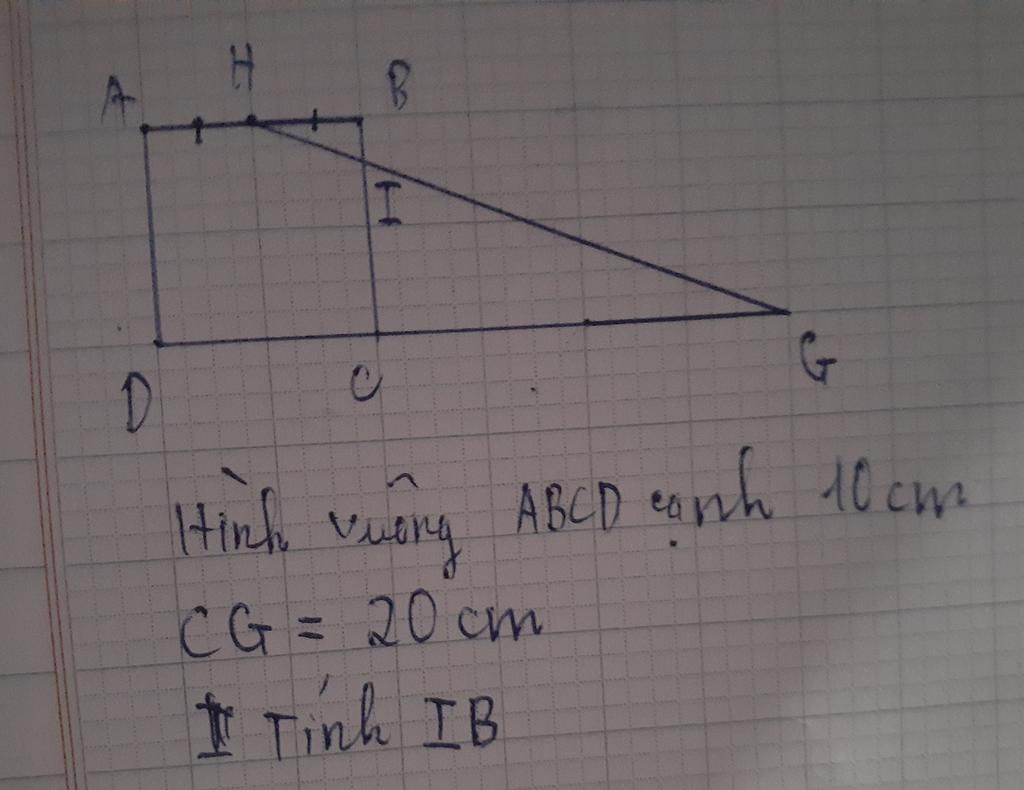 H
A B
I
D C G
Hình vuông ABCD cạnh 10 cm
CG = 20 cm
Tính IB